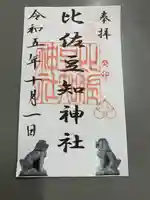 奉拝
比佐豆知神社
令和五年十月一日